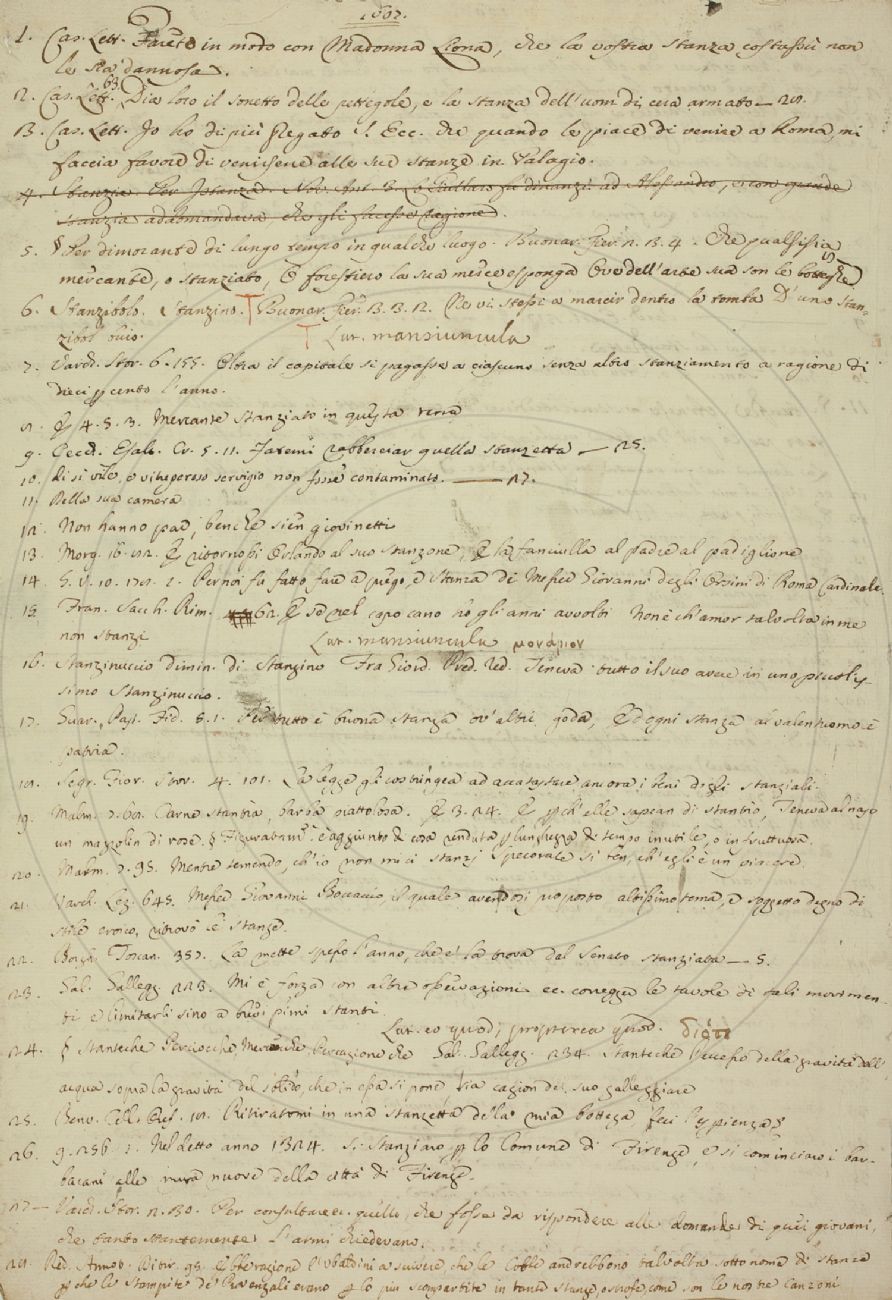 1. Cas. Lett. Farete in modo con Madonna Llona, che la vostra stanza costassù non
le sia dannosa.
2. Cas. Lett. 63. Dia loro il sonetto delle pettegole, e la stanza dell'uom di cera armato —
3. Cas. Lett. Io ho di più pregato S. Ecc. che quando le piace di venire a Roma, mi
faccia favore di venirsene alle sue stanze in Palagio.
4. Stanzia. Per Istanza. Nov. Ant. 3. Lo Giullaro fu dinanzi ad Alessandro, e con grande
stanzia addomandava, che gli facesse ragione.
5. § Per dimorante di lungo tempo in qualche luogo. Buonar. Fier. 2. 3. 4. Che qualsisia
mercante, o stanziato, o forestiero la sua merce esponga Ove dell'arte sua son le botteghe
6. Stanzibolo. Stanzino. Buonar. Fier. 3. 3. 12. Che vi stessi a marcir dentro la tomba D'uno stan-
zibol buio. Lat. mansiuncula
7. Varch. Stor. 6. 155. Oltra il capitale si pagasse a ciascuno senza altro stanziamento a ragione di
dieci per cento l'anno.
8. E 4. 5. 3. Mercante stanziato in questa terra
9. Cecch. Esalt. Cr. 5. 11. Faremi rabberciar quella stanzetta — 25.
10. di sì vile, e vituperoso servigio non fusse contaminato. —
11. Della sua camera
12. Non hanno pari, benchè sien giovinetti
13. Morg. 16. E ritornossi Orlando al suo stanzone, E la fanciulla al padre al padiglione
14. G. V. 10. Per noi fu fatto fare a priego, e stanza di Messer Giovanni degli Orsini di Roma Cardinale.
15. Fran. Sacch. Rim. 62. E se nel capo cano ho gli anni avvolti Non è ch'amor talvolta in me
non stanzi Lat. mansiuncula μονάριον
16. Stanzinuccio dimin. di Stanzino Fra Giord. Pred. Red. Teneva tutto il suo avere in uno piccolis-
simo stanzinuccio.
17. Guar. Past. Fid. 5. 1. Per tutto è buona stanza ov'altri goda, Ed ogni stanza al valentuomo è
patria.
18. Segr. Fior. Stor. 4. 101. La legge gli costringea ad accatastare ancora i beni degli stanziali.
19. Malm. 7. Carne stantìa, barba piattolosa. E 3. 24. E perch'elle sapean di stantìo, Teneva al naso
un mazzolin di rose. § Figuratam. è aggiunto di cosa renduta per lunghezza di tempo inutile, o infruttuosa.
20. Malm. 7. 95. Mentre temendo, ch'io non mi ci stanzi
21. Varch. Lez. 645. Messer Giovanni Boccaccio, il quale avendosi proposto altissimo tema, e soggetto degno di
stile eroico, ritrovò le stanze.
22. Borgh. Toscan. 357. La mette spesso l'anno, che e' la trova dal Senato stanziata — 5.
23. Gal. Gallegg. 223. Mi è forza con altre osservazioni ec. correggere le tavole di tali movimen-
ti e limitarli sino a brevissimi stanti
Lat. eo quod, propterea quod. διότι
24. § Stanteche Perciocchè, Mercecchè, Per cagione che Gal. Gallegg. 234. Stantechè l'eccesso della gravità dell'
acqua sopra la gravità del solido, che in essa si pone sia cagion del suo galleggiare
25. Benv. Cell. Oref. Ritiratomi in una stanzetta della mia bottega feci l'esperienza
26. g. 256. 1. Nel detto anno 1324. si stanziaro per lo Comune di Firenze, e si cominciaro i bar-
bacani alle mura nuove della città di Firenze.
27 — Varch. Stor. 2. 130. Per consultare ec. quello, che fosse da rispondere alle domande di quei giovani,
che tanto stantemente l'armi chiedevano.
28. Red. Annot. Ditir. 95. Ebbe ragione l'Ubaldini a scrivere che le Cobble andrebbono talvolta sotto nome di stanze
perchè le stampite de' Provenzali erano per lo più scompartite in tante stanze, o strofe, come son le nostre canzoni